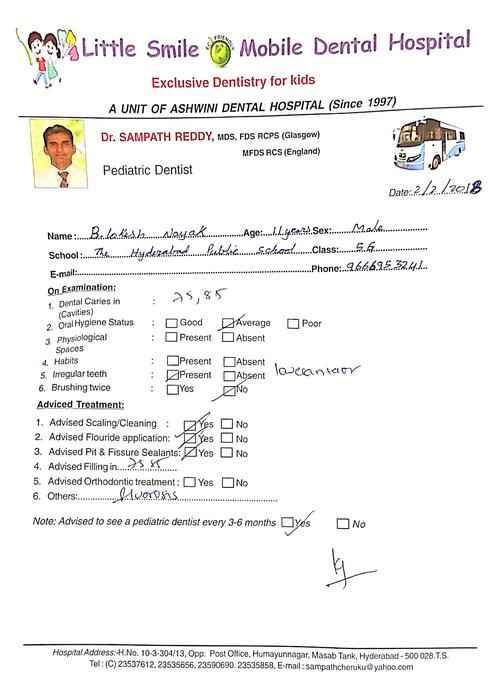 Little Smile ECO FRIENDLY Mobile Dental Hospital
Exclusive Dentistry for kids
A UNIT OF ASHWINI DENTAL HOSPITAL (Since 1997)
Dr. SAMPATH REDDY, MDS, FDS RCPS (Glasgow)
MFDS RCS (England)
Pediatric Dentist
Date: 2/2/2018
Name: B. Lokesh Nayak Age: 11 years Sex: Male
School: The Hyderabad Public School Class: 5.G
E-mail: Phone: 9666953241
On Examination:
1. Dental Caries in : 75, 85
(Cavities)
2. Oral Hygiene Status : Good Average Poor
3. Physiological : Present Absent
Spaces
4. Habits : Present Absent
5. Irregular teeth : Present Absent
6. Brushing twice : Yes No
Adviced Treatment:
1. Advised Scaling/Cleaning : Yes No
2. Advised Flouride application: Yes No
3. Advised Pit & Fissure Sealants: Yes No
4. Advised Filling in 75 85
5. Advised Orthodontic treatment : Yes No
6. Others: fluorosis
Note: Advised to see a pediatric dentist every 3-6 months Yes No
Hospital Address:-H.No. 10-3-304/13, Opp: Post Office, Humayunnagar, Masab Tank, Hyderabad - 500 028.T.S.
Tel : (C) 23537612, 23535656, 23590690. 23535858, E-mail : sampathcheruku@yahoo.com